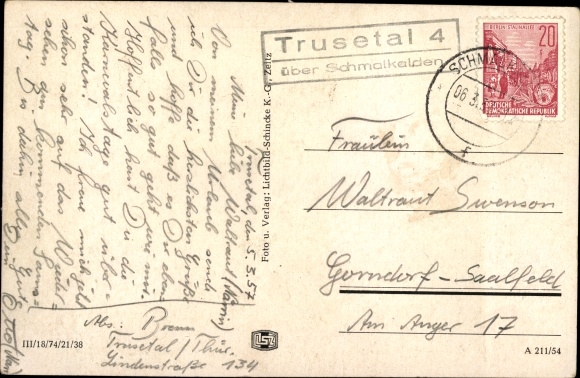 Trusetal, den 5.3.57
Meine liebe Waltraut (Mann)
Von meinem Urlaub sende
ich Dir die herzlichsten Grüße
und hoffe daß es Dir eben-
falls so gut geht wie mir.
Hoffentlich hast Du die
Karnevalstage gut über-
standen! Ich freue mich jetzt
schon sehr auf das Wieder-
sehen am kommenden Sams-
tag. Bis dahin alles Gute
Dein Otto
Abs: Braun
Trusetal / Thür.
Lindenstraße 134
III/18/74/21/38
Foto u. Verlag: Lichtbild-Schincke K.-G., Zeitz
LSZ
Trusetal 4
über Schmalkalden
SCHMAL
06.3.
f
BERLIN STALINALLEE
20
DEUTSCHE
DEMOKRATISCHE REPUBLIK
Fräulein
Waltraut Swenson
Gorndorf-Saalfeld
Am Anger 17
A 211/54